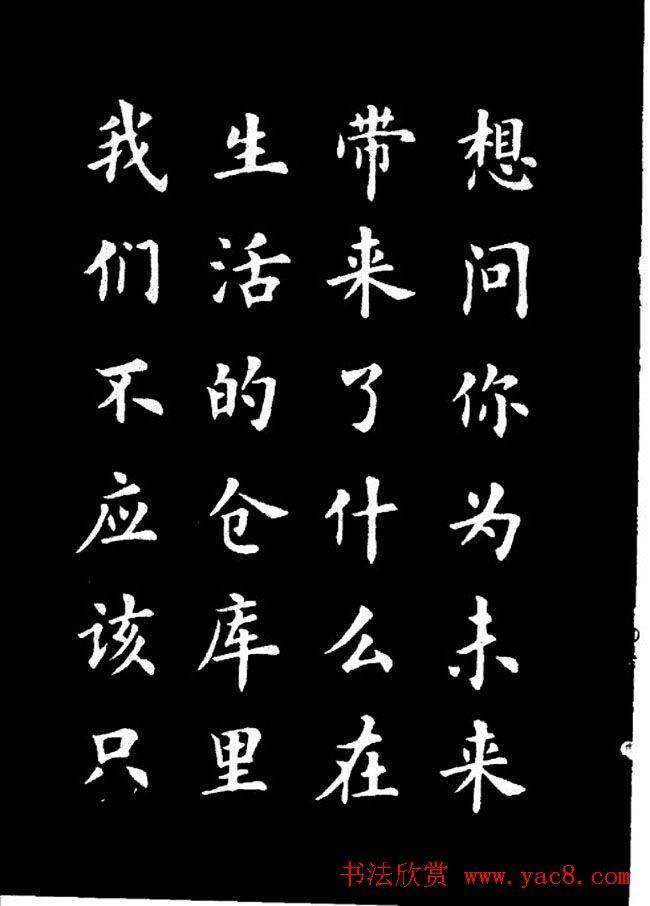 想问你为未来
带来了什么在
生活的仓库里
我们不应该只
书法欣赏 www.yac8.com